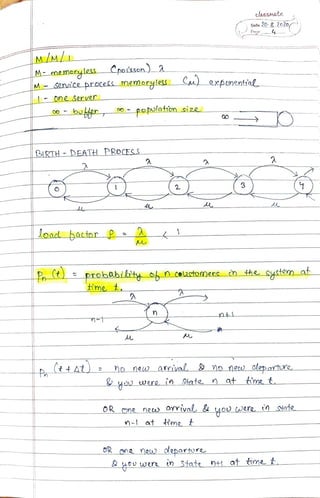 classmate
Date 20.8.2020
Page 4
M/M/1
M- memoryless (poisson) λ
M - service process memoryless (μ) exponential
1 - one server
∞ - buffer, ∞ - population size
∞
BIRTH - DEATH PROCESS
λ λ λ λ
0 1 2 3 4
μ μ μ μ
load factor ρ = λ/μ < 1
Pn(t) = probability of n coustomers in the system at
time t.
λ λ
n-1 n n+1
μ μ
Pn (t + Δt) = no new arrival & no new departure
& you were in state n at time t.
OR one new arrival & you were in state
n-1 at time t
OR one new departure
& you were in state n+1 at time t.